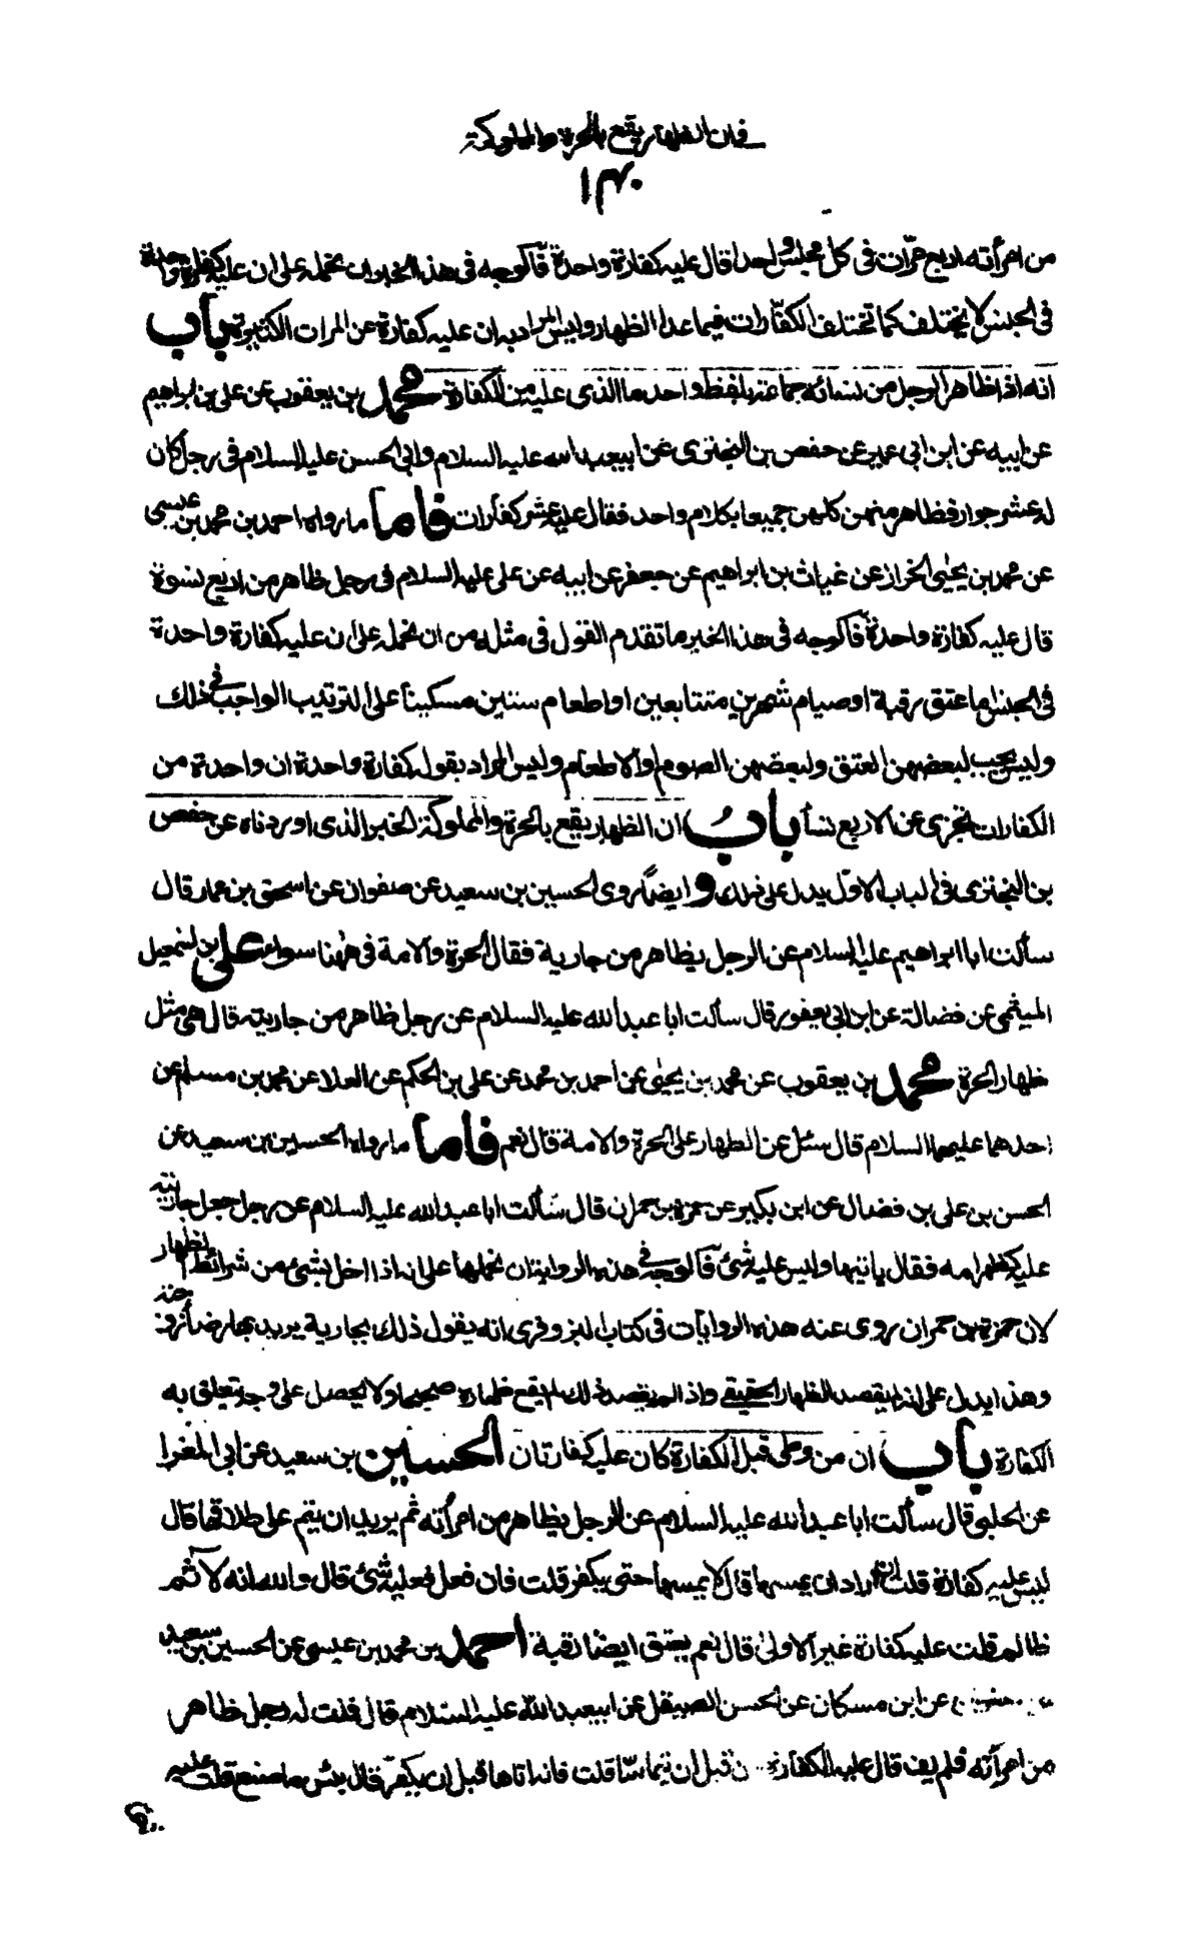 فى ان الظهار يقع بالحرة والمملوكة
١٣٠
من امرأته اربع مرّات فى كل مجلس واحدا قال عليه كفارة واحدة فالوجه فى هذا الخبر ان نحمله على ان عليه كفارة واحدة
فى الجنس لا يختلف كما تختلف الكفّارات فيما عدا الظهار وليس المراد به ان عليه كفارة عن المرات الكثيرة باب
انه اذا ظاهر الرجل من نسائه جماعة بلفظ واحد ما الذى عليه من الكفارة محمد بن يعقوب عن على بن ابراهيم
عن ابيه عن ابن ابى عمير عن حفص بن البخترى عن ابيعبد الله عليه السلام وابى الحسن عليه السلام فى رجل كان
له عشر جوار فظاهر منهن كلهن جميعا بكلام واحد فقال عليه عشر كفارات فاما ما رواه احمد بن محمد بن عيسى
عن محمد بن يحيٰى الخراز عن غياث بن ابراهيم عن جعفر عن ابيه عن على عليه السلام فى رجل ظاهر من اربع نسوة
قال عليه كفارة واحدة فالوجه فى هذا الخبر ما تقدم القول فى مثله من ان نحمله على ان عليه كفارة واحدة
فى الجنس اما عتق رقبة او صيام شهرين متتابعين او اطعام ستين مسكينا على الترتيب الواجب فى ذلك
وليس يجب لبعضهن العتق ولبعضهن الصوم او الاطعام وليس المراد بقوله كفارة واحدة ان واحدة من
الكفارات تجزى عن الاربع نسأ بابُ ان الظهار يقع بالحرة والمملوكة الخبر الذى اوردناه عن حفص
بن البخترى فى الباب الاوّل يدل على ذلك و ايضاً روى الحسين بن سعيد عن صفوان عن اسحق بن عمار قال
سألت ابا ابراهيم عليه السلام عن الرجل يظاهر من جارية فقال الحرة والامة فى هٰهنا سواء على بن اسمعيل
الميثمى عن فضالة عن ابن ابى يعفور قال سألت ابا عبد الله عليه السلام عن رجل ظاهر من جاريته قال هى مثل
ظهار الحرة محمد بن يعقوب عن محمد بن يحيٰى عن احمد بن محمد عن على بن الحكم عن العلا عن محمد بن مسلم عن
احدهما عليهما السلام قال سئل عن الظهار على الحرة والامة قال نعم فاما ما رواه الحسين بن سعيد عن
الحسن بن على بن فضال عن ابن بكير عن حمزة بن حمران قال سألت ابا عبد الله عليه السلام عن رجل جعل جاريته
عليه كظهر امه فقال يأتيها وليس عليه شئ فالوجه فى هذه الرواية ان نحملها على انه اذا اخل بشئ من شرائط الظهار
لان حمزة بن حمران روى عنه هذه الروايات فى كتاب البزوفرى انه يقول ذلك بجارية يريد بها رضا زوجته
وهذا يدل على انه لم يقصد الظهار الحقيقى واذا لم يقصد ذلك لم يقع ظهاره صحيحا ولا يحصل على وجه تتعلق به
الكفارة باب ان من وطى قبل الكفارة كان عليه كفارتان الحسين بن سعيد عن ابى المغرا
عن الحلبى قال سألت ابا عبد الله عليه السلام عن الرجل يظاهر من امرأته ثم يريد ان يتم على طلاقها قال
ليس عليه كفارة قلت ان اراد ان يمسها قال لا يمسها حتى يكفر قلت فان فعل فعليه شئ قال والله انه لآثم
ظالم قلت عليه كفارة غير الاولى قال نعم يعتق ايضا رقبة احمد بن محمد بن عيسى عن الحسين بن سعيد
عن ابن مسكان عن الحسن الصيقل عن ابيعبد الله عليه السلام قال قلت له رجل ظاهر
من امرأته فلم يف قال عليه الكفارة من قبل ان يتماسّا قلت فانه اتاها قبل ان يكفّر قال بئس ما صنع قلت عليه